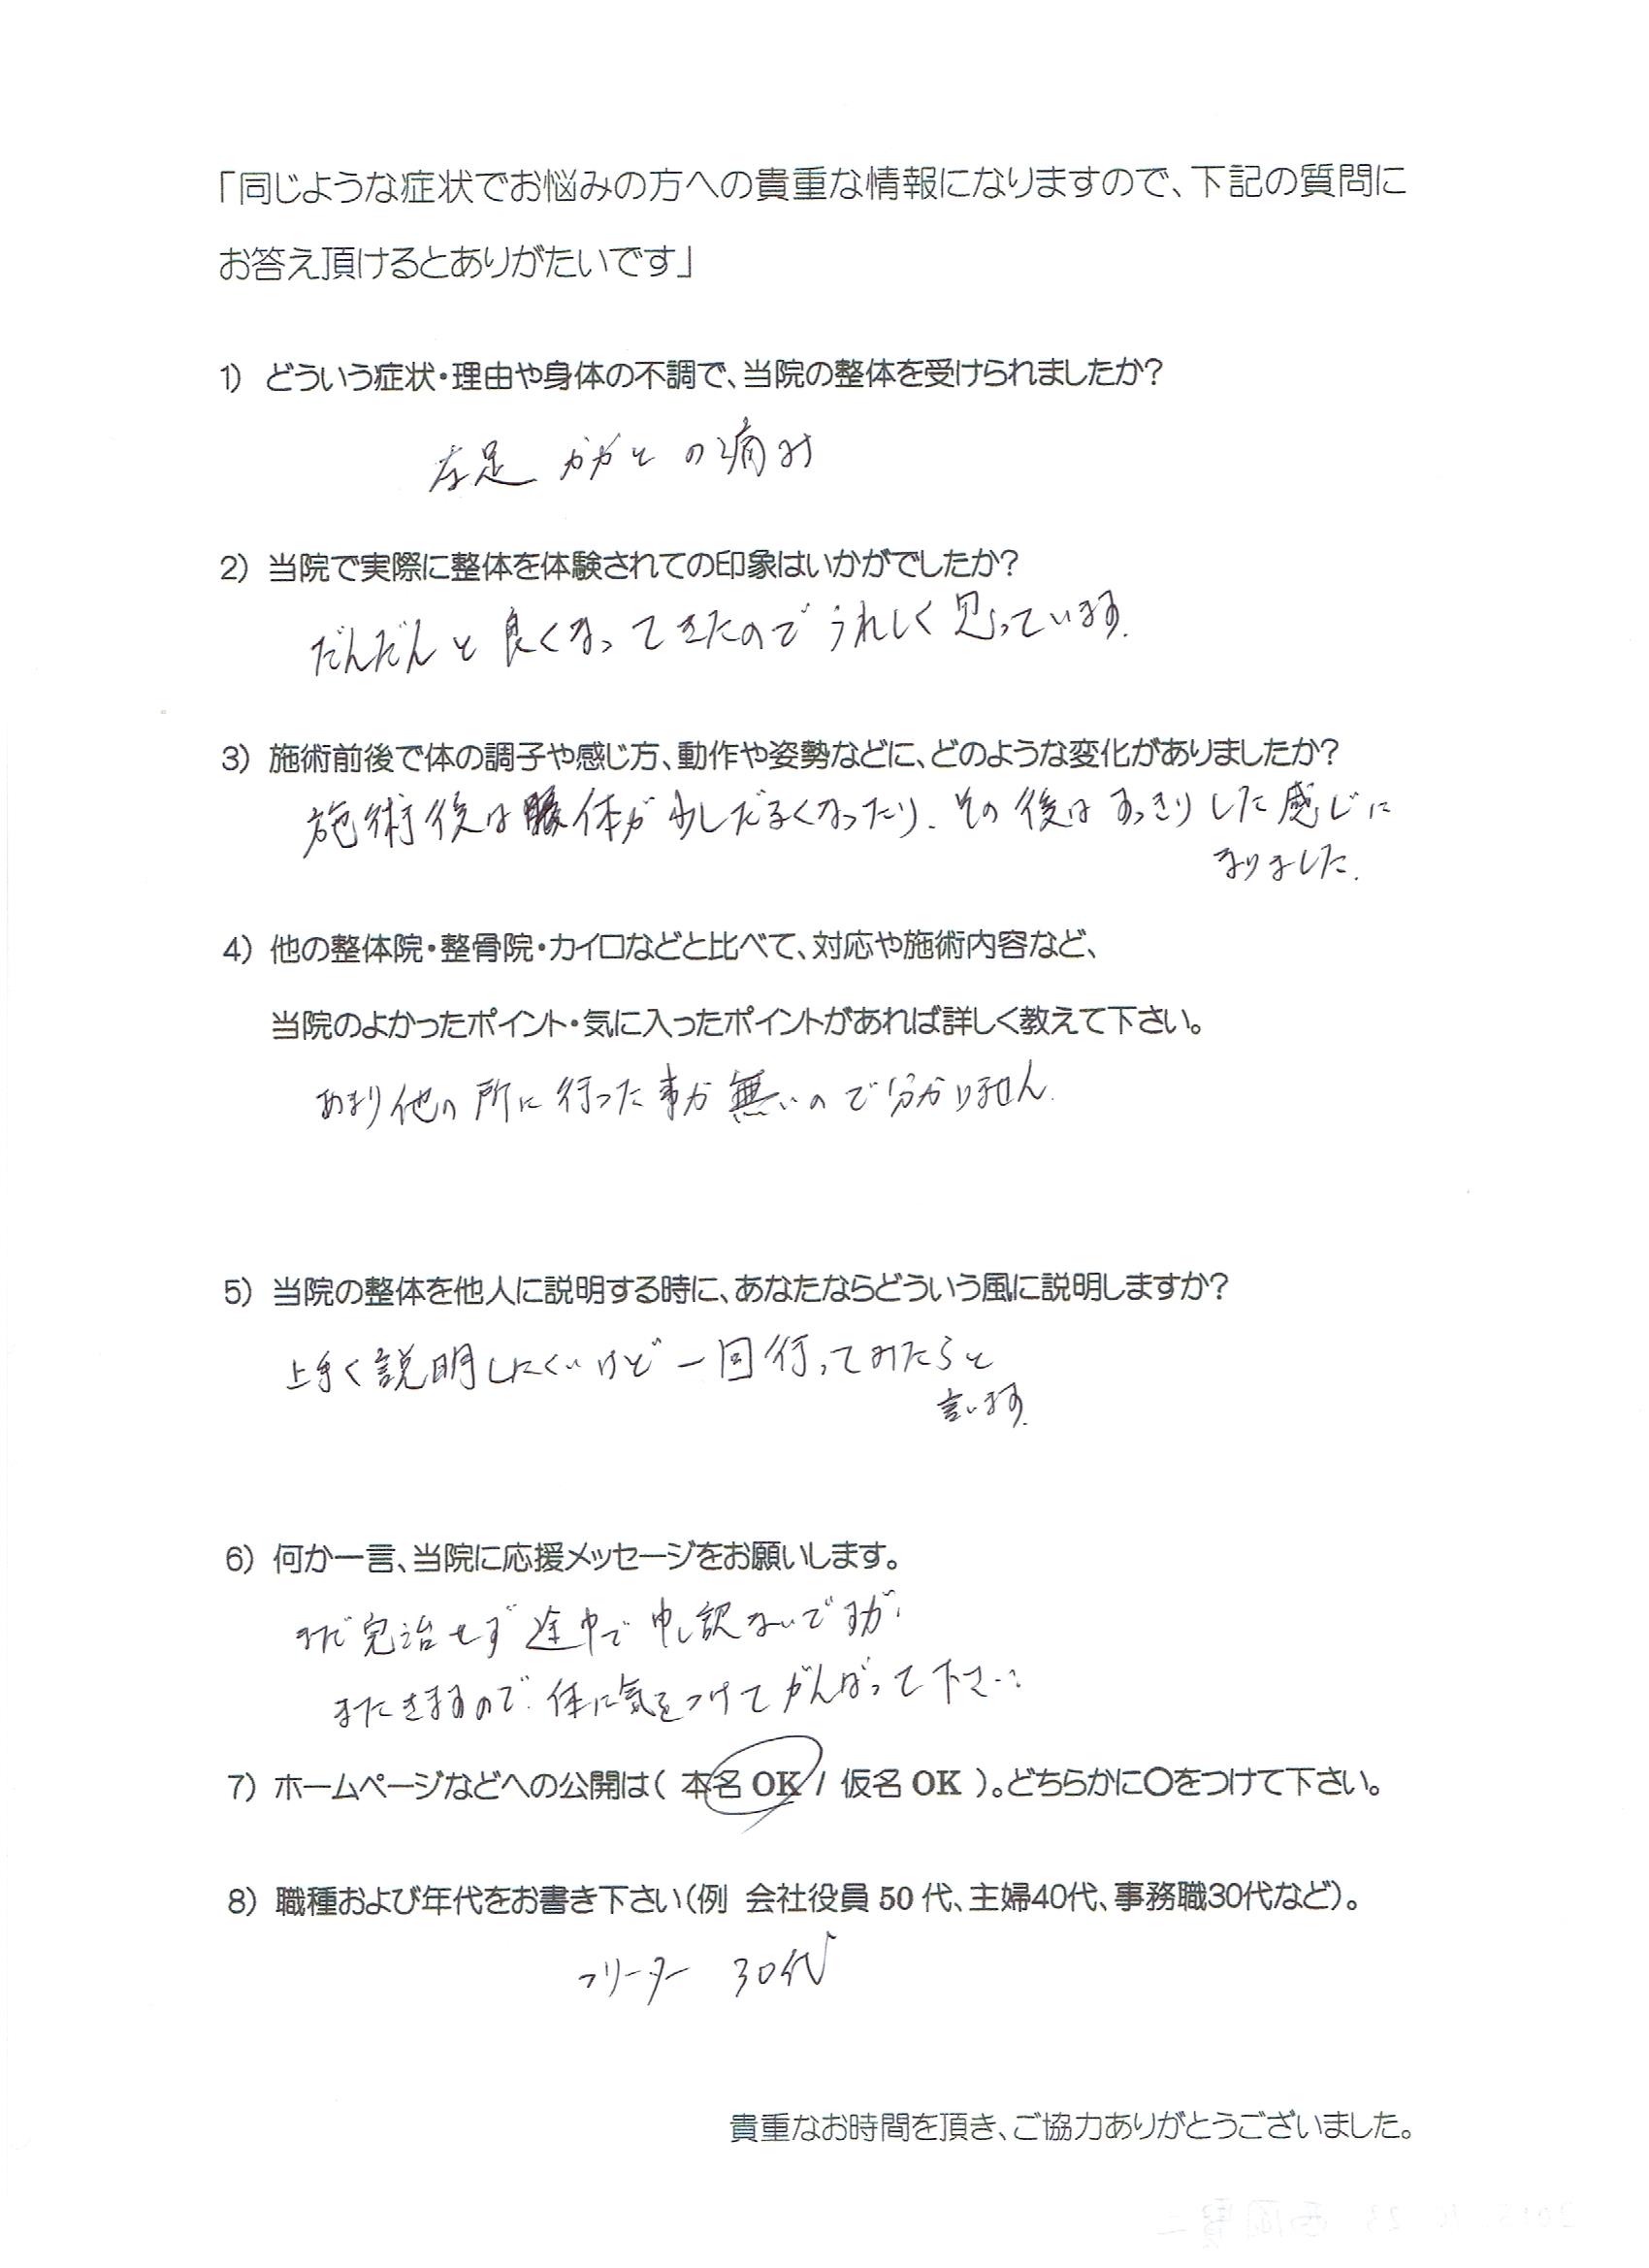 「同じような症状でお悩みの方への貴重な情報になりますので、下記の質問に
お答え頂けるとありがたいです」
1) どういう症状・理由や身体の不調で、当院の整体を受けられましたか?
左足 かかと の痛み
2) 当院で実際に整体を体験されての印象はいかがでしたか?
だんだんと良くなってきたのでうれしく思っています.
3) 施術前後で体の調子や感じ方、動作や姿勢などに、どのような変化がありましたか?
施術後は体が少しだるくなったり、その後はすっきりした感じに
なりました.
4) 他の整体院・整骨院・カイロなどと比べて、対応や施術内容など、
当院のよかったポイント・気に入ったポイントがあれば詳しく教えて下さい。
あまり他の所に行った事が無いので分かりません.
5) 当院の整体を他人に説明する時に、あなたならどういう風に説明しますか?
上手く説明しにくいけど一回行ってみたらと
言います.
6) 何か一言、当院に応援メッセージをお願いします。
まだ完治せず途中で申し訳ないですが、
またきますので、体に気をつけてがんばって下さい
7) ホームページなどへの公開は( 本名 OK / 仮名 OK )。どちらかに○をつけて下さい。
8) 職種および年代をお書き下さい(例 会社役員 50 代、主婦40代、事務職30代など)。
フリーター 30代
貴重なお時間を頂き、ご協力ありがとうございました。